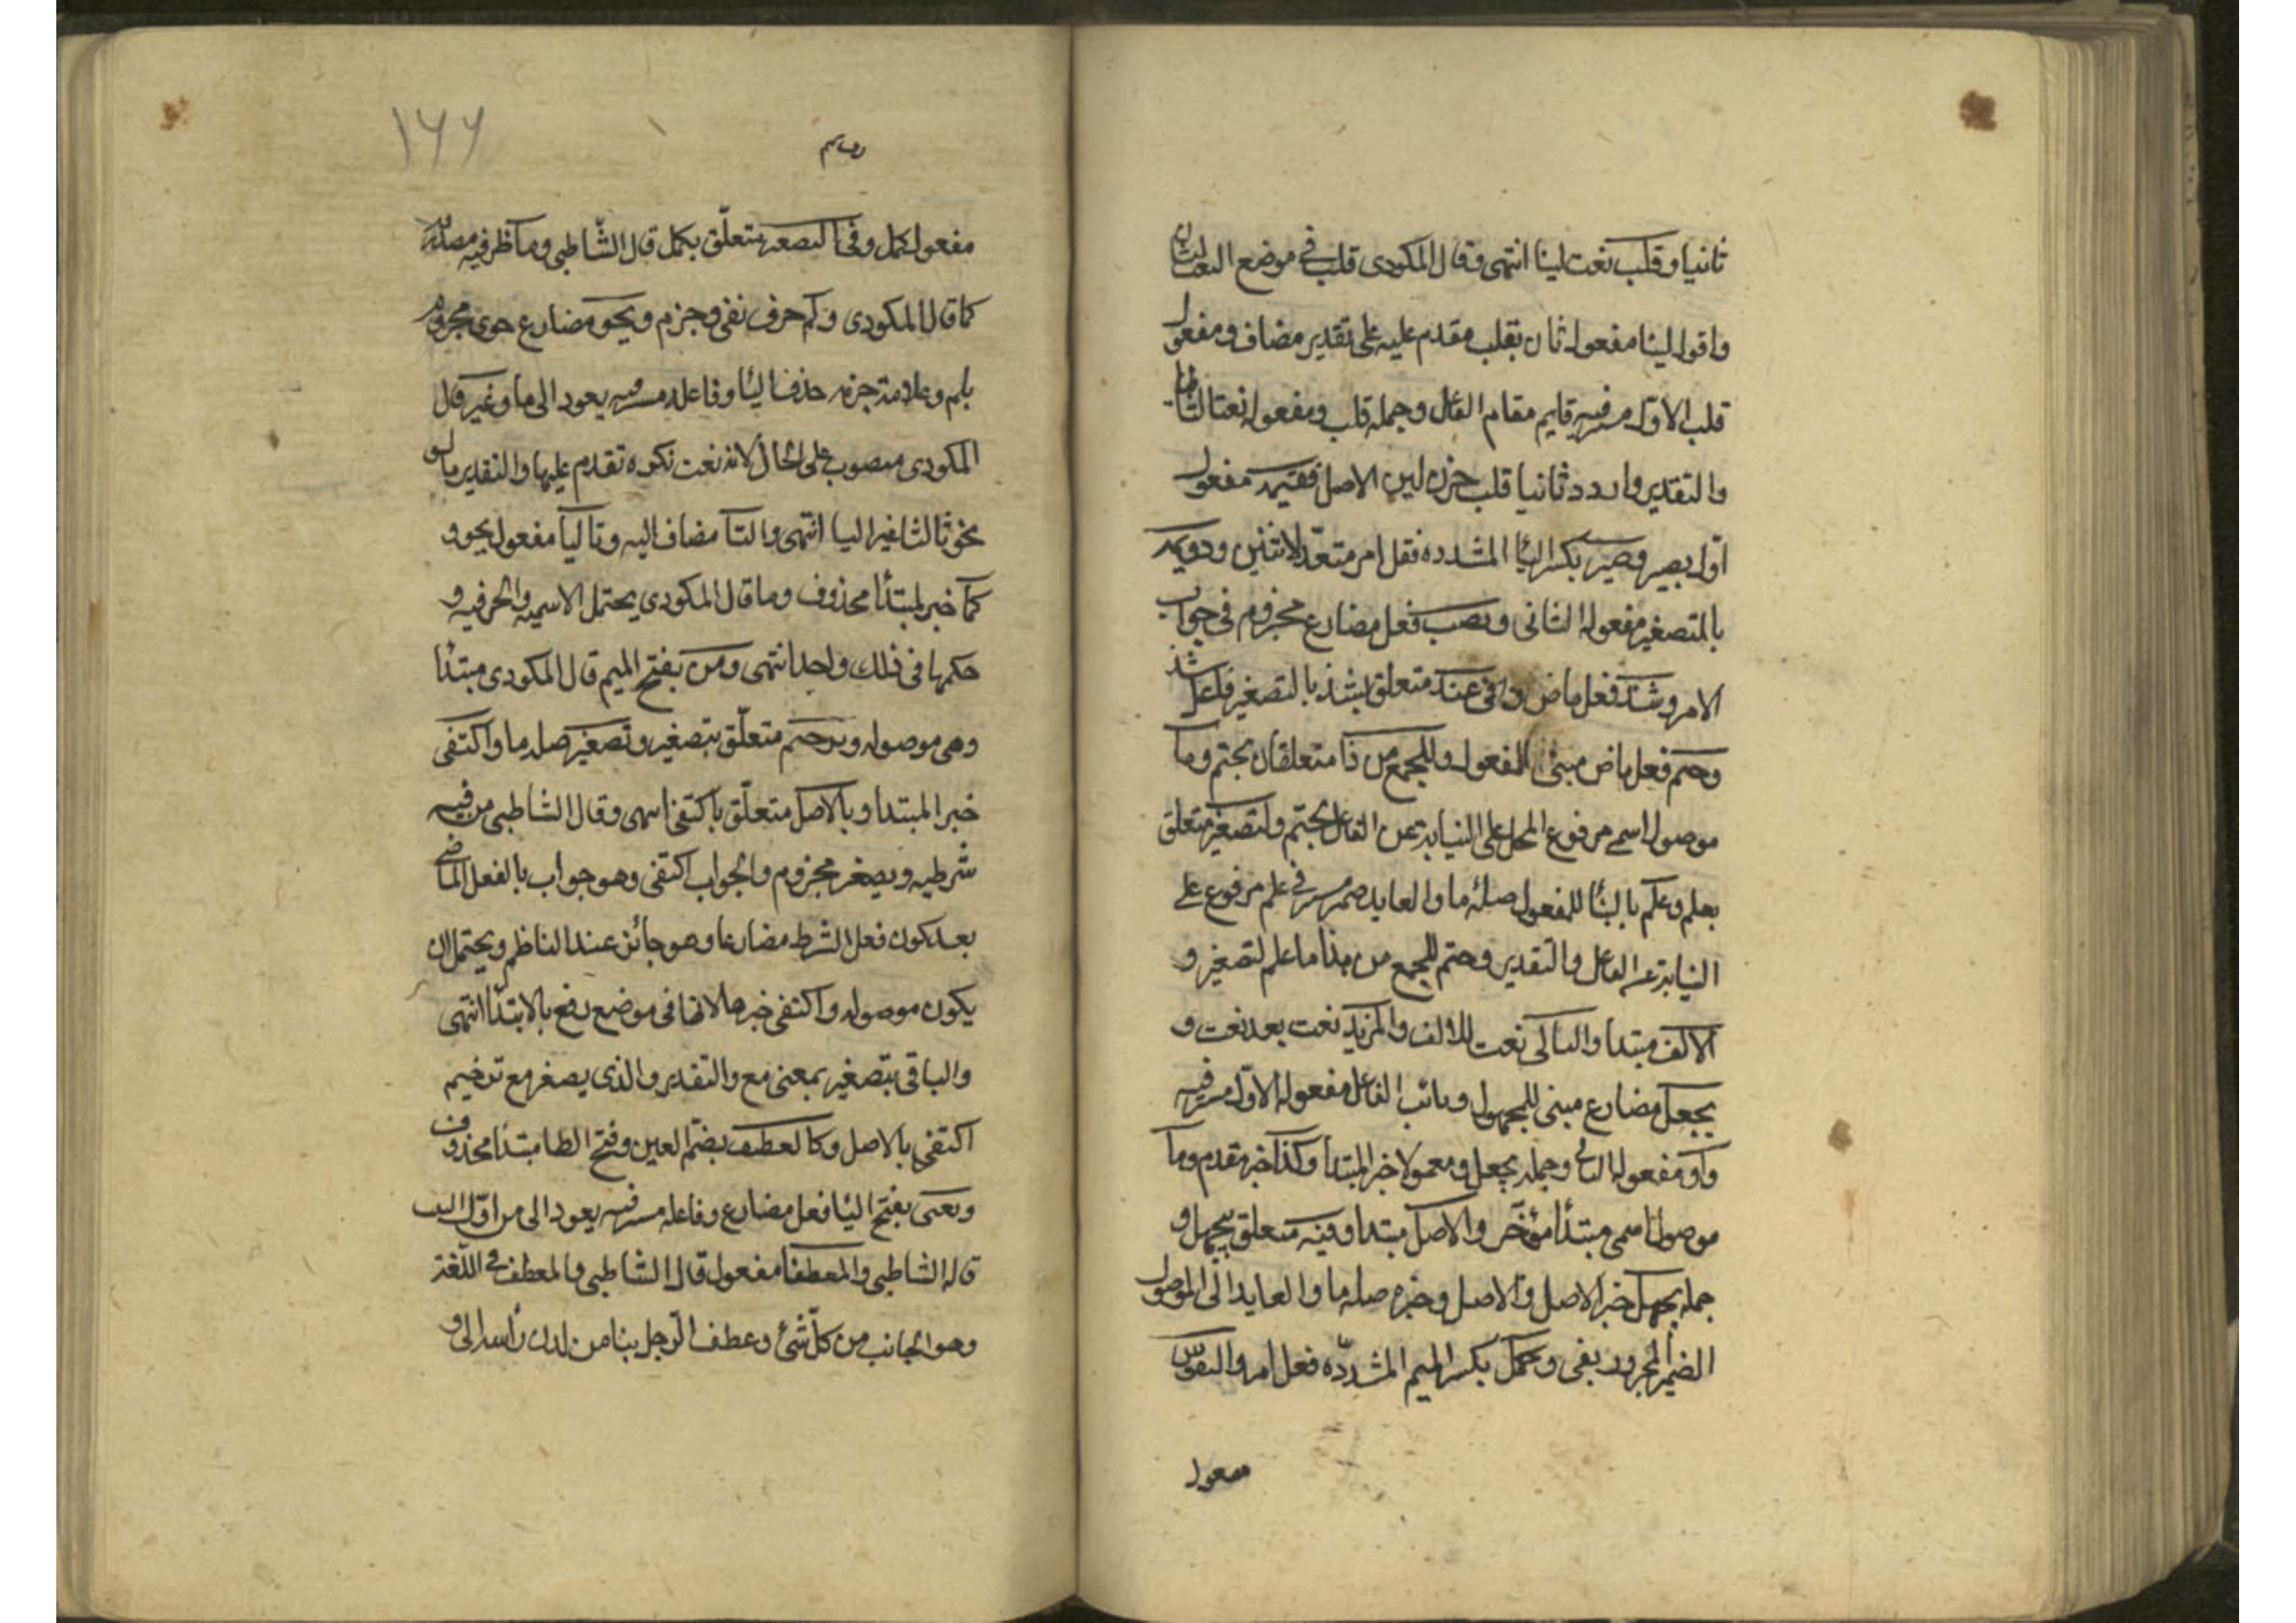 ثانيا وقلب نعت لينا انتهى وقال المكودى قلب في موضع النعت لثان
واقول لينا مفعول ثان بقلب مقدم عليه على تقدير مضاف ومفعول
قلب الاول مستتر فيه قايم مقام الفاعل وجملة قلب ومفعوله نعتا لثانيا
والتقدير واردد ثانيا قلب حرف لين الاصل فقيمة مفعول
اول بصير وصير بكسر اليا المشدده فعل امر متعد لاثنين ودويمة
بالتصغير مفعوله الثانى وتصب فعل مضارع مجزوم فى جواب
الامر وشذ فعل ماض وفى عيد متعلق بشذ بالتصغير فاعل شذ
وحتم فعل ماض مبنى للمفعول وللجمع من ذا متعلقان بحتم وما
موصول اسمى مرفوع المحل على النيابة عن الفاعل بحتم ولتصغير متعلق
بعلم وعلم بالبنا للمفعول صلة ما والعايد ضمير مستتر فى علم مرفوع على
النيابة عن الفاعل والتقدير وحتم للجمع من هذا ما علم لتصغير و
الالف مبتدا والثانى نعت للالف والمزيد نعت بعد نعت و
يجعل مضارع مبنى للمجهول ونائب الفاعل مفعوله الاول مستتر فيه
واو مفعوله الثانى وجملة يجعل ومعمولا خبر المبتدا وكذا خبر مقدم وما
موصول اسمى مبتدأ مؤخر والاصل مبتدا وفيه متعلق بيجهل و
جملة يجهل خبر الاصل والاصل وخبره صلة ما والعايد الى الموصول
الضمير المجرور بفى وكمل بكسر الميم المشدده فعل امر والمنقوص
مفعول
١٦٦
مفعول كمل وفى التصغير متعلق بكمل قال الشاطبى وما ظرفيه مصدريه
كما قال المكودى ولم حرف نفى وجزم ويحو مضارع حوى مجزوم
بلم وعلامة جزمه حذف اليا وفاعله مستتر فيه يعود الى ما وغير قال
المكودى منصوب على الحال لانه نعت نكره تقدم عليها والتقدير ما لم
يحو ثالثا غير اليا انتهى والتا مضاف اليه وثالثا مفعول يحو و
كما خبر لمبتدأ محذوف وما قال المكودى يحتمل الاسميه والحرفيه و
حكمها فى ذلك واحد انتهى ومن بفتح الميم قال المكودى مبتدأ
وهى موصوله وبترخيم متعلق بتصغير وتصغير صله ما واكتفى
خبر المبتدا وبالاصل متعلق باكتفى انتهى وقال الشاطبى من فيه
شرطيه ويصغر مجزوم والجواب اكتفى وهو جواب بالفعل الماضى
بعد كون فعل الشرط مضارعا وهو جائز عند الناظم ويحتمل ان
يكون موصوله واكتفى خبرها لانها فى موضع رفع بالابتدا انتهى
والباقى بتصغير بمعنى مع والتقدير والذى يصغر مع ترخيم
اكتفى بالاصل وكالعطيف بضم العين وفتح الطا مبتدأ محذوف
ويعنى بفتح اليا فعل مضارع وفاعله مستتر فيه يعود الى من اول البيت
قاله الشاطبى والمعطفا مفعول قال الشاطبى والمعطف فى اللغة
وهو الجانب من كل شئ وعطف الرجل بينا من لدن رأسه الى و